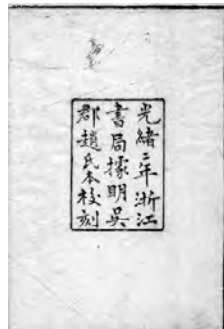 光緒二年浙江
書局據明吳
郡趙氏本校刻